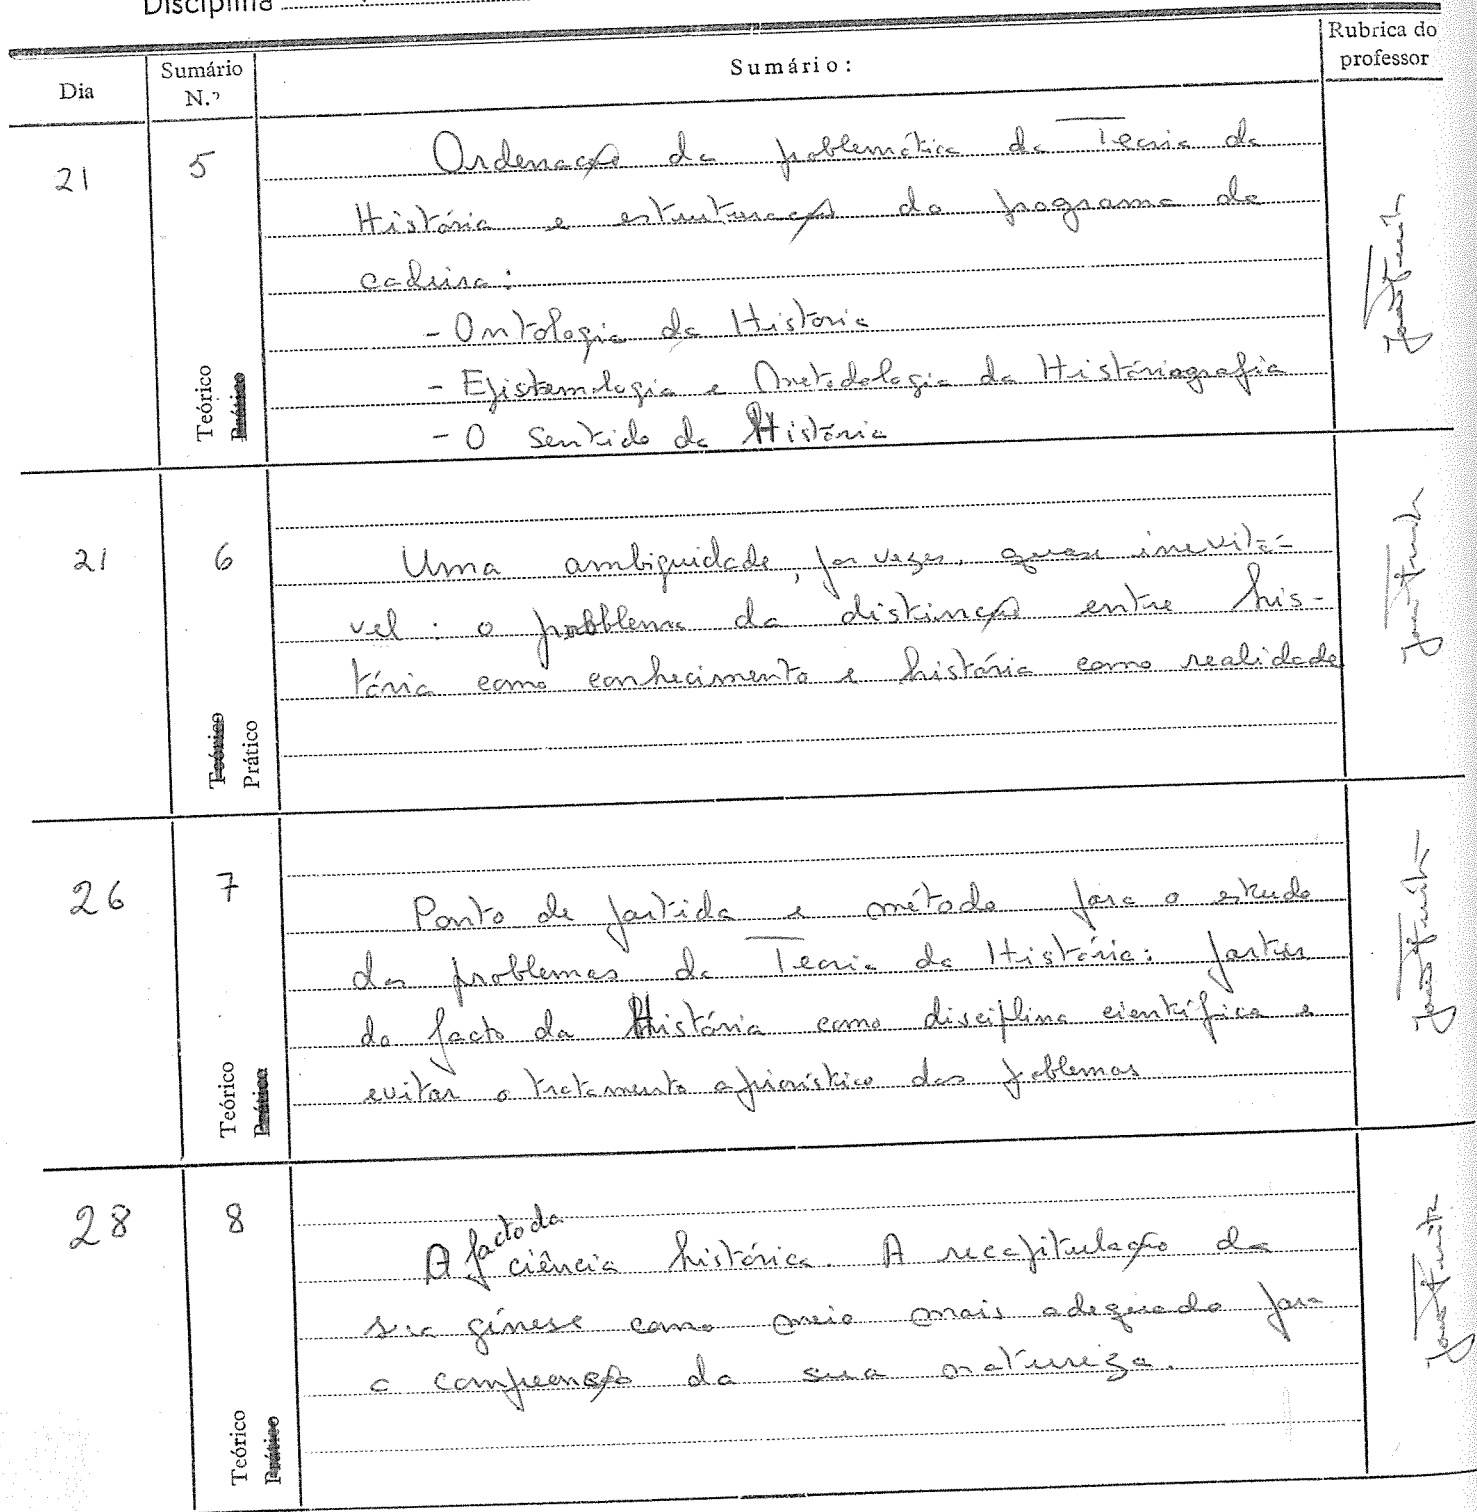 Disciplina
Dia
Sumário N.º
Sumário:
Rubrica do professor
21
5
Teórico
Prático
Ordenação da problemática da Teoria da
História e estruturação do programa da
cadeira:
- Ontologia da Historia
- Epistemologia e Metodologia da Históriografia
- O Sentido da História
21
6
Teórico
Prático
Uma ambiguidade, por vezes, quase inevitá-
vel: o probblema da distinção entre his-
tória como conhecimento e história como realidade
26
7
Teórico
Prático
Ponto de partida e método para o estudo
dos problemas da Teoria da História: partir
do facto da História como disciplina científica e
evitar o tratamento apriorístico dos problemas
28
8
Teórico
Prático
O facto da ciência histórica. A recapitulação da
sua génese como meio mais adequado para
a compreensão da sua natureza.